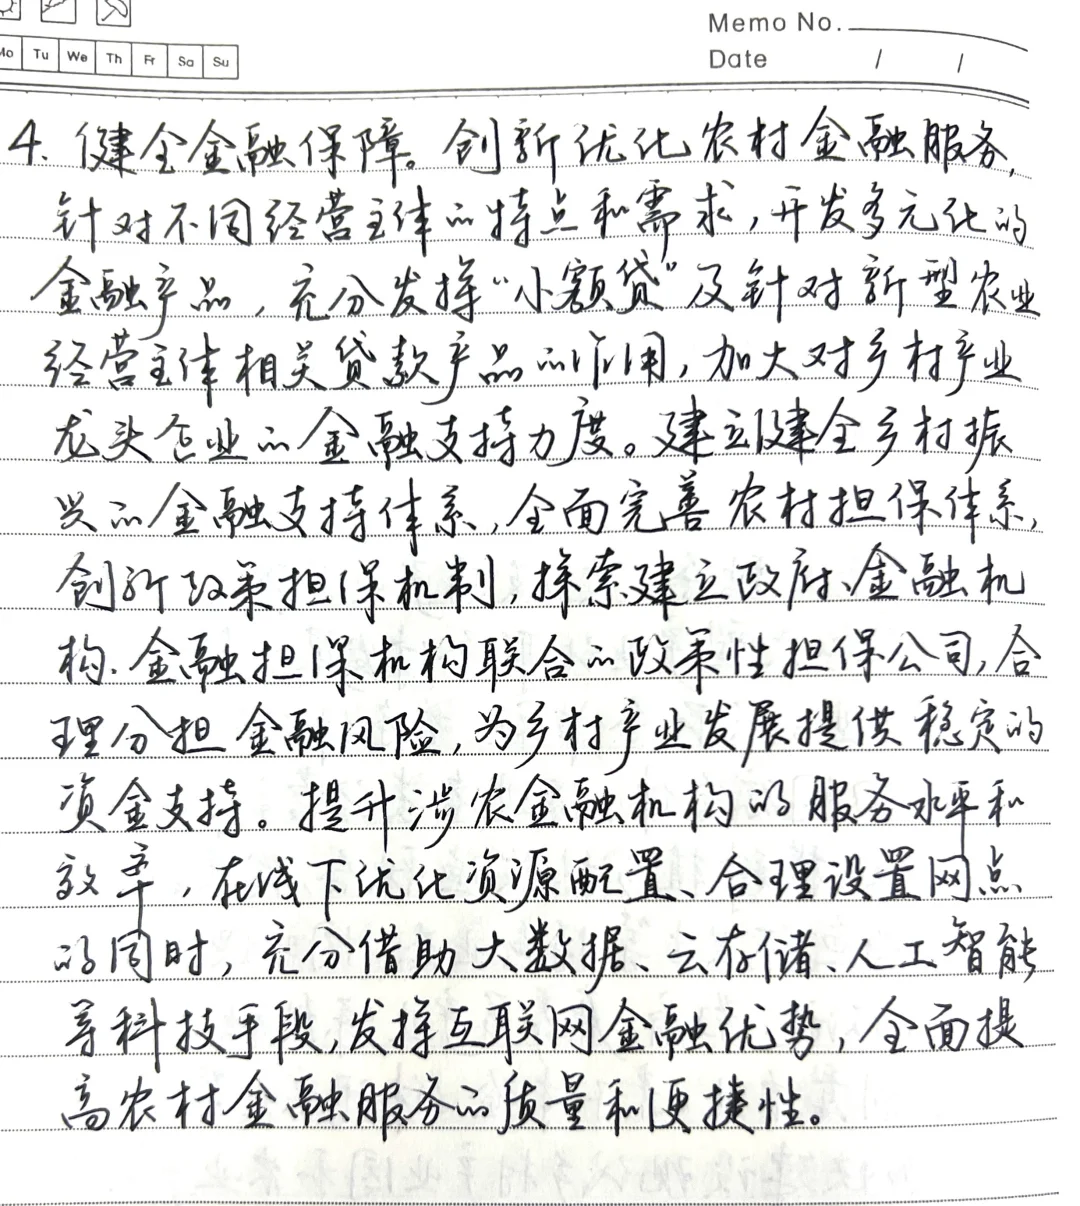 Memo No.
Mo Tu We Th Fr Sa Su
Date / /
4. 健全金融保障。创新优化农村金融服务,
针对不同经营主体的特点和需求,开发多元化的
金融产品,充分发挥“小额贷”及针对新型农业
经营主体相关贷款产品的作用,加大对乡村产业
龙头企业的金融支持力度。建立健全乡村振
兴的金融支持体系,全面完善农村担保体系,
创新政策担保机制,探索建立政府、金融机
构、金融担保机构联合的政策性担保公司,合
理分担金融风险,为乡村产业发展提供稳定的
资金支持。提升涉农金融机构的服务水平和
效率,在线下优化资源配置、合理设置网点
的同时,充分借助大数据、云存储、人工智能
等科技手段,发挥互联网金融优势,全面提
高农村金融服务的质量和便捷性。